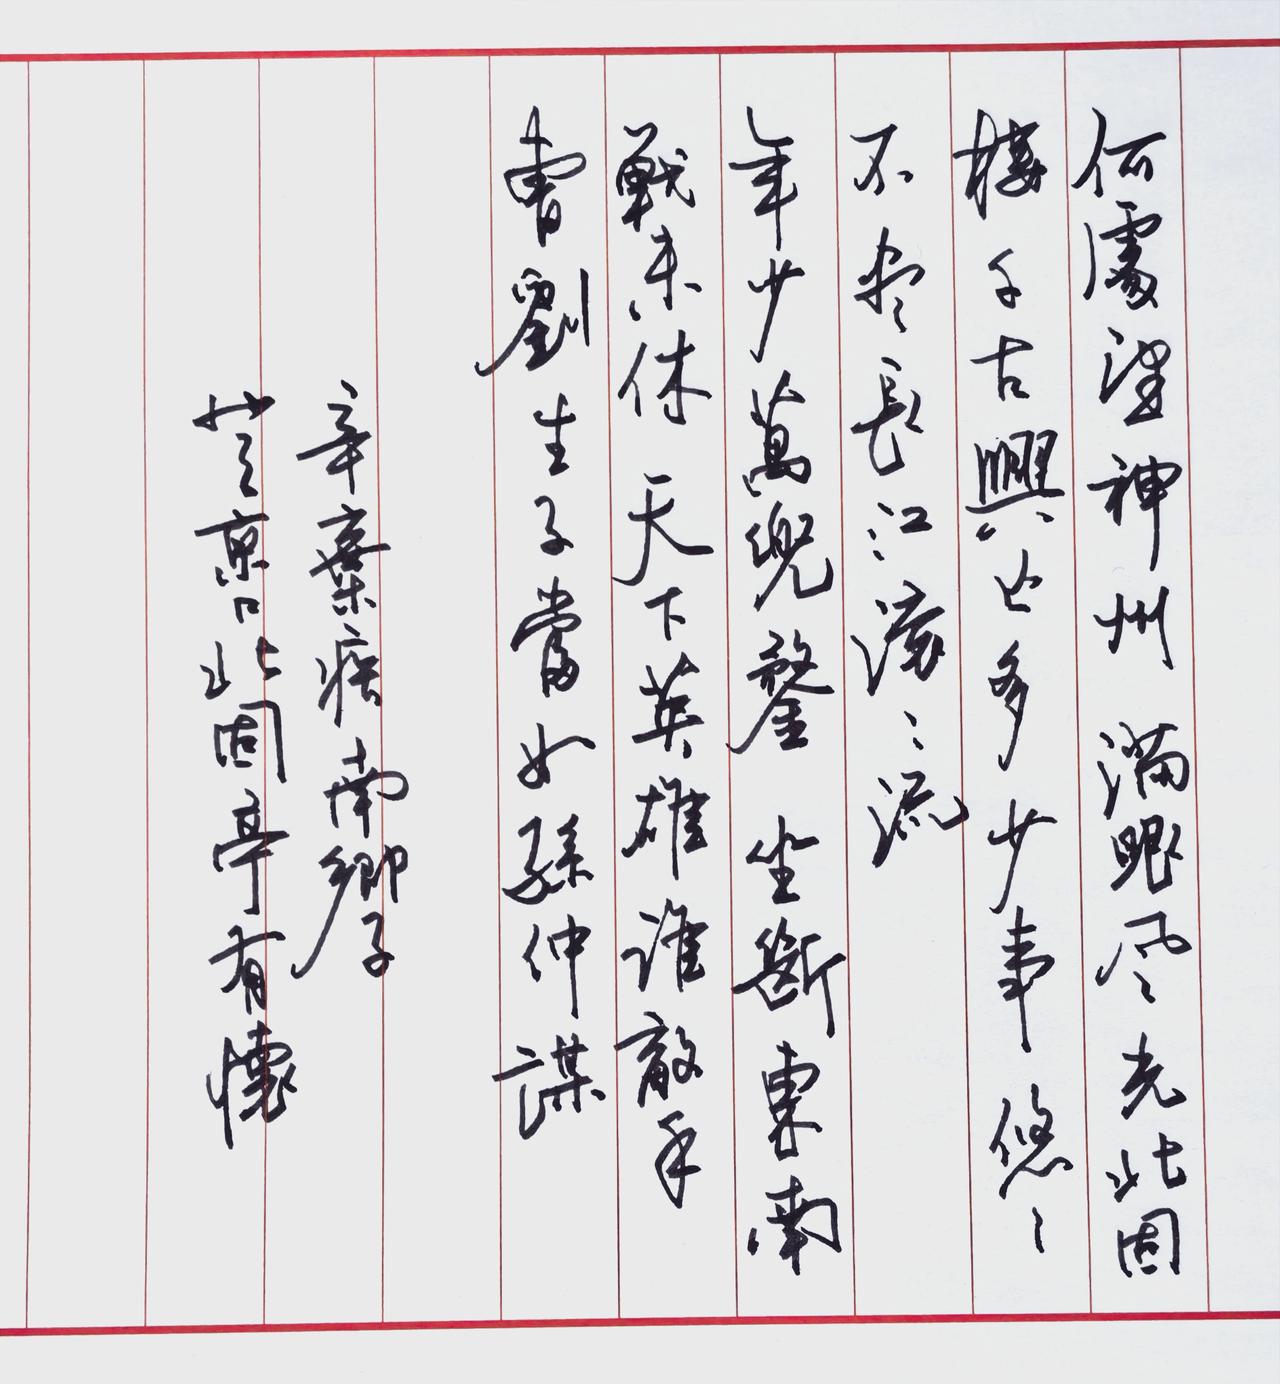 何處望神州滿眼風光北固
樓千古興亡多少事悠〻
不盡長江滾〻流
年少萬兜鍪坐斷東南
戰未休天下英雄誰敵手
曹劉生子當如孫仲謀
辛棄疾南鄉子
登京口北固亭有懷